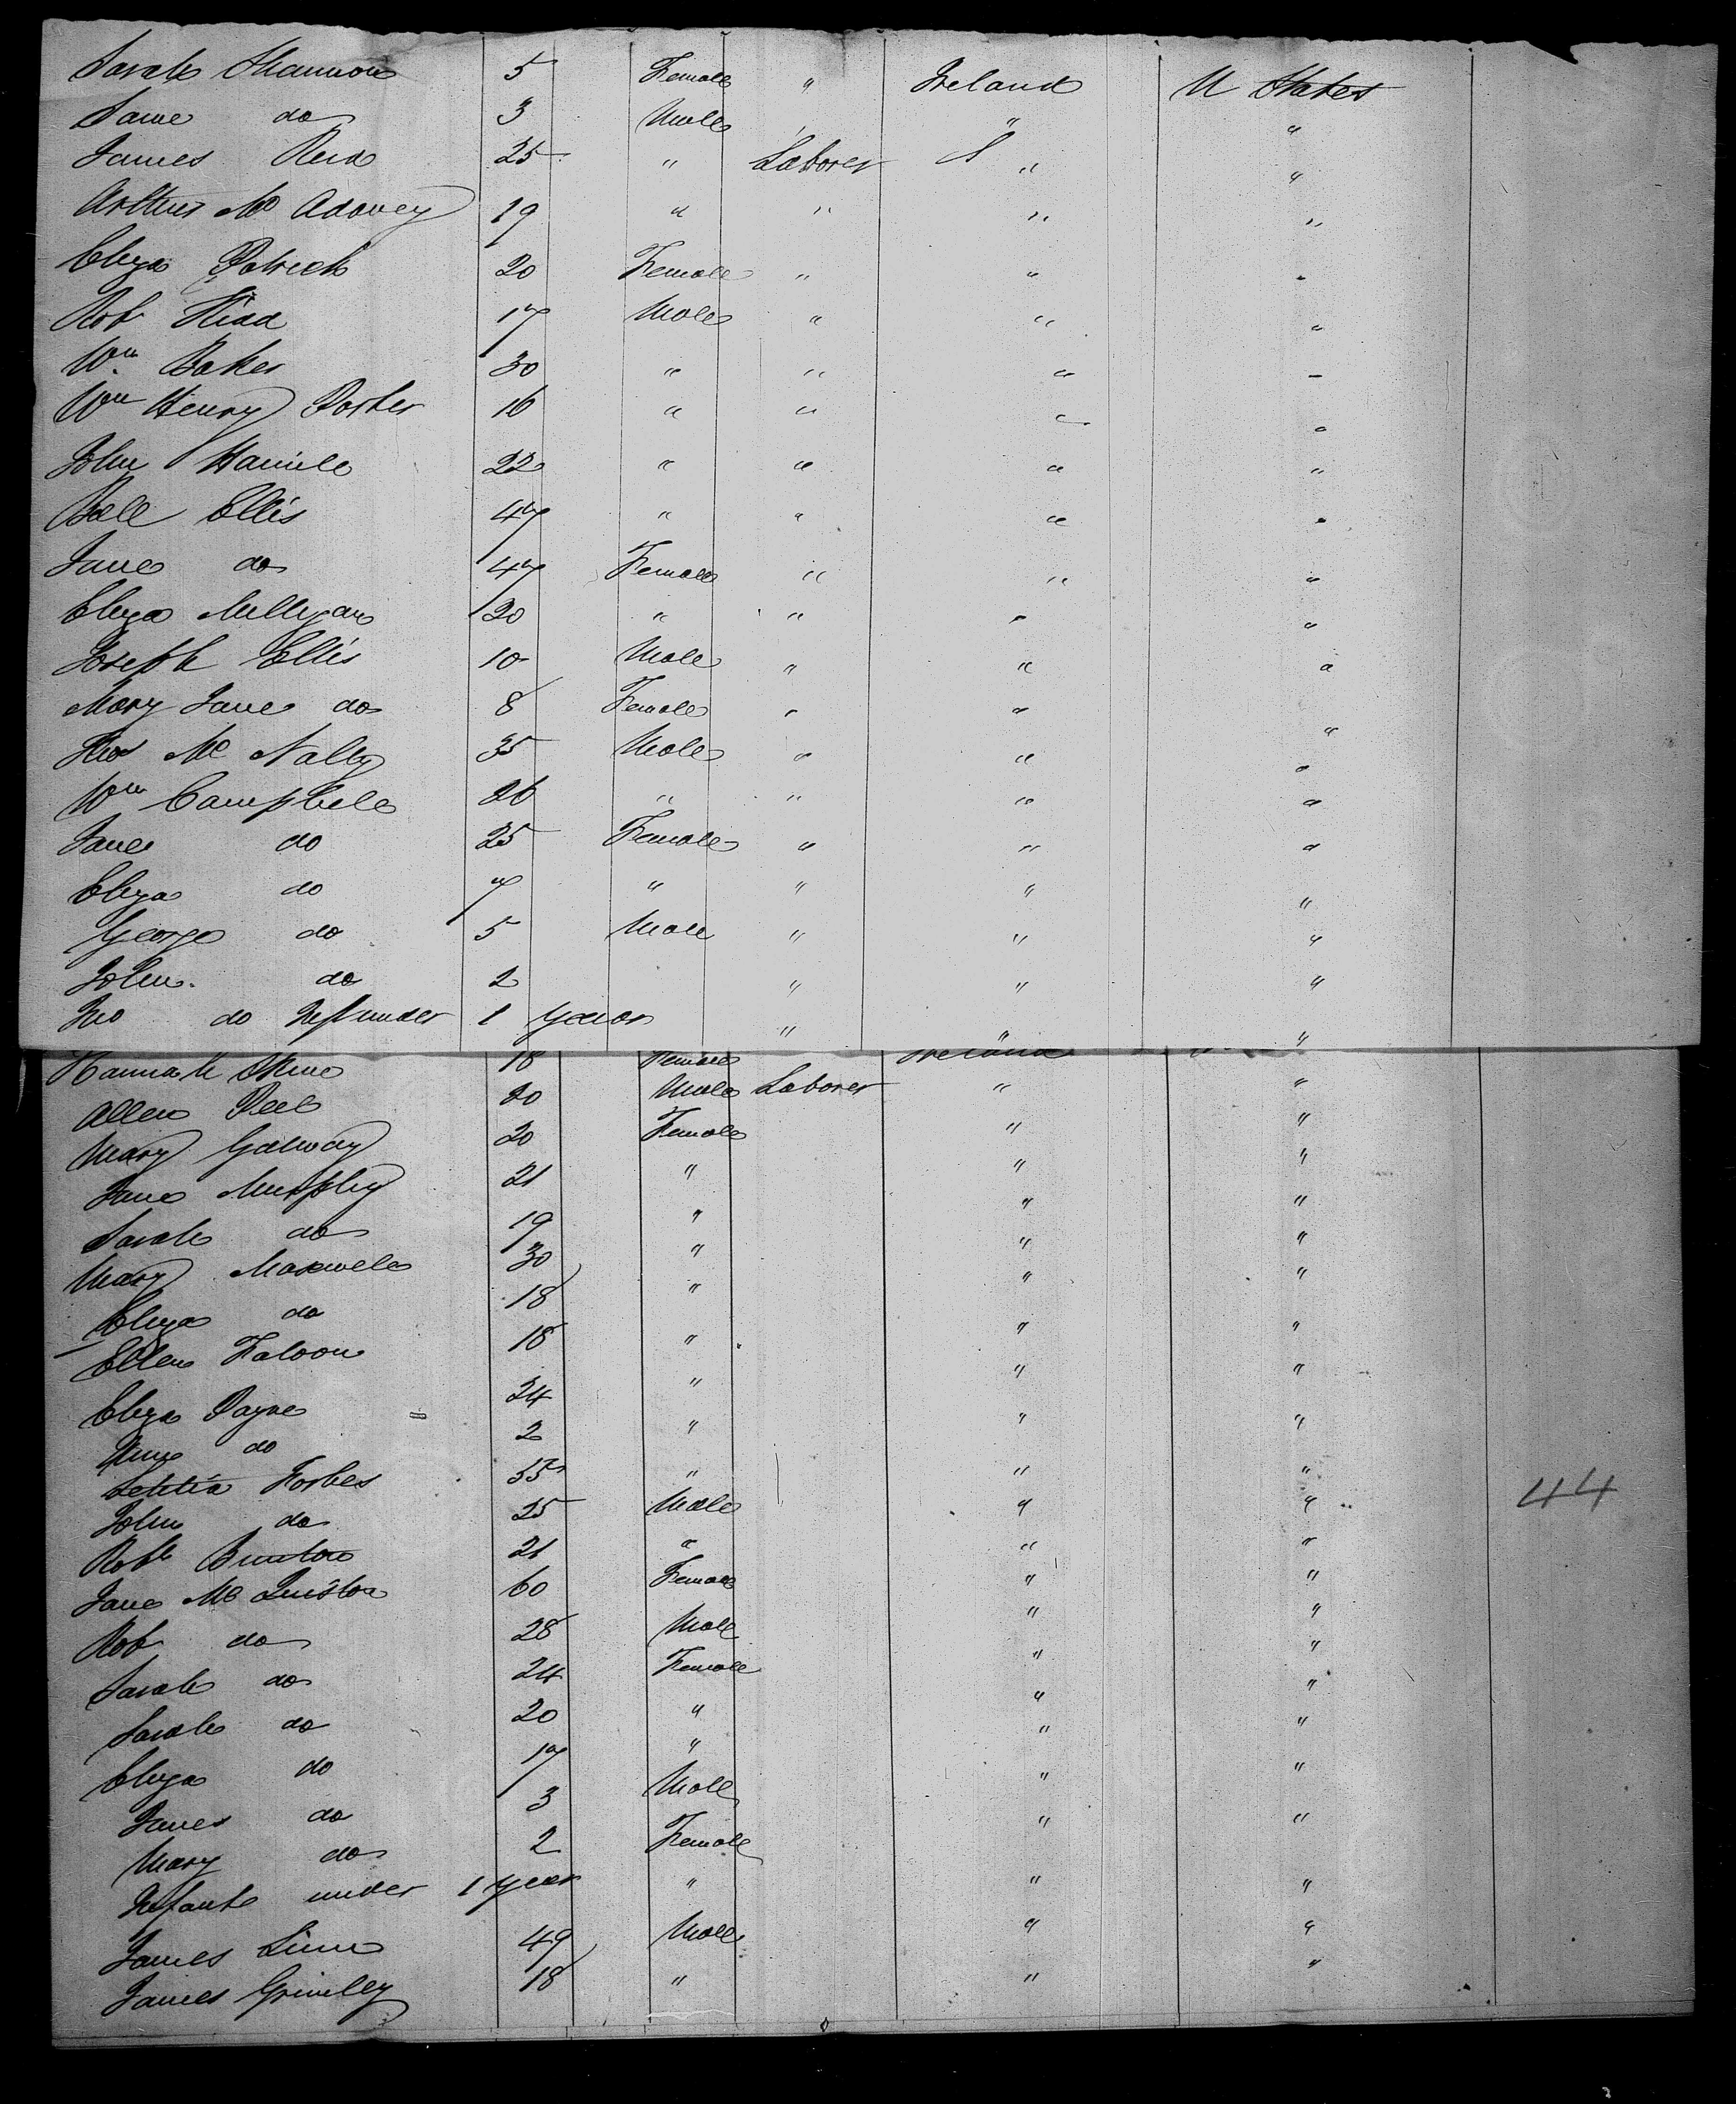 Sarah Shannon 5 Female " Ireland U States
Same do 3 Male " " "
James Reid 25 " Laborer " "
Arthur Mc Adavey 19 " " " "
Eliza Patrick 20 Female " " "
Rob Kidd 17 Male " " "
Wm Baker 30 " " " "
Wm Henry Porter 16 " " " "
John Hamile 22 " " " "
Bell Ellis 47 " " " "
Jane do 47 Female " " "
Eliza Milligan 20 " " " "
Joseph Ellis 10 Male " " "
Mary Jane do 8 Female " " "
Mc Nally 35 Male " " "
Wm Campbell 26 " " " "
Jane do 25 Female " " "
Eliza do 7 " " " "
George do 5 Male " " "
John do 2 " " "
Jno do Inft under 1 year " " "
Hannah 18 Female Ireland
Allen Peel 20 Male Laborer " "
Mary Galway 20 Female " "
Jane Murphy 21 " " "
Sarah do 19 " " "
Mary Maxwell 30 " " "
Eliza do 18 " " "
Ellen Faloon 18 " " "
Eliza Payne 24 " " "
do 2 " " "
Letitia Forbes 55 " " "
John do 25 Male " " 44
Robt Bunton 21 " " "
Jane Mc Quiston 60 Female " "
Rob do 28 Male " "
Sarah do 24 Female " "
Sarah do 20 " " "
Eliza do 17 " " "
James do 3 Male " "
Mary do 2 Female " "
Infant under 1 year " " "
James Linn 49 Male " "
James Grimley 18 " " "